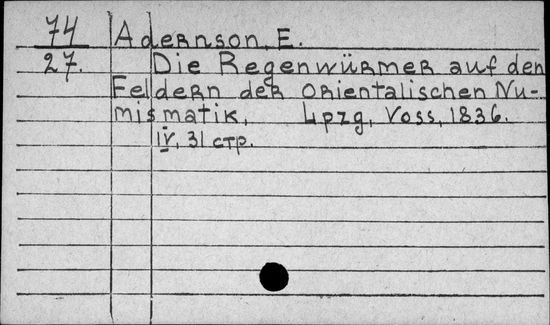 74 Adernson, E.
27. Die Regenwürmer auf den
Feldern der orientalischen Nu-
mismatik. Lpzg, Voss, 1836.
IV, 31 стр.